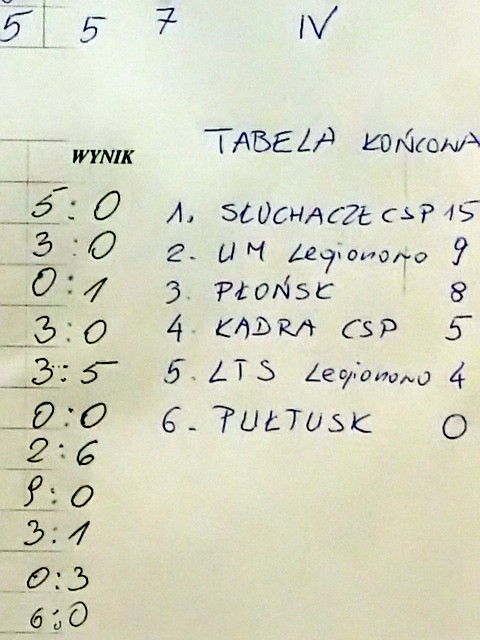 5 5 7 IV
TABELA KOŃCOWA
WYNIK
5:0
3:0
0:1
3:0
3:5
0:0
2:6
9:0
3:1
0:3
6:0
1. SŁUCHACZE CSP 15
2. UM Legionowo 9
3. PŁOŃSK 8
4. KADRA CSP 5
5. LTS Legionowo 4
6. PUŁTUSK 0